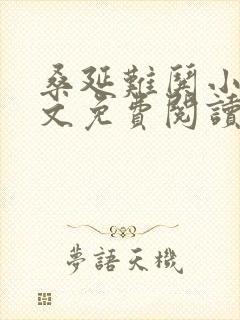 桑延難鬨小
文免費閱讀
夢語天機